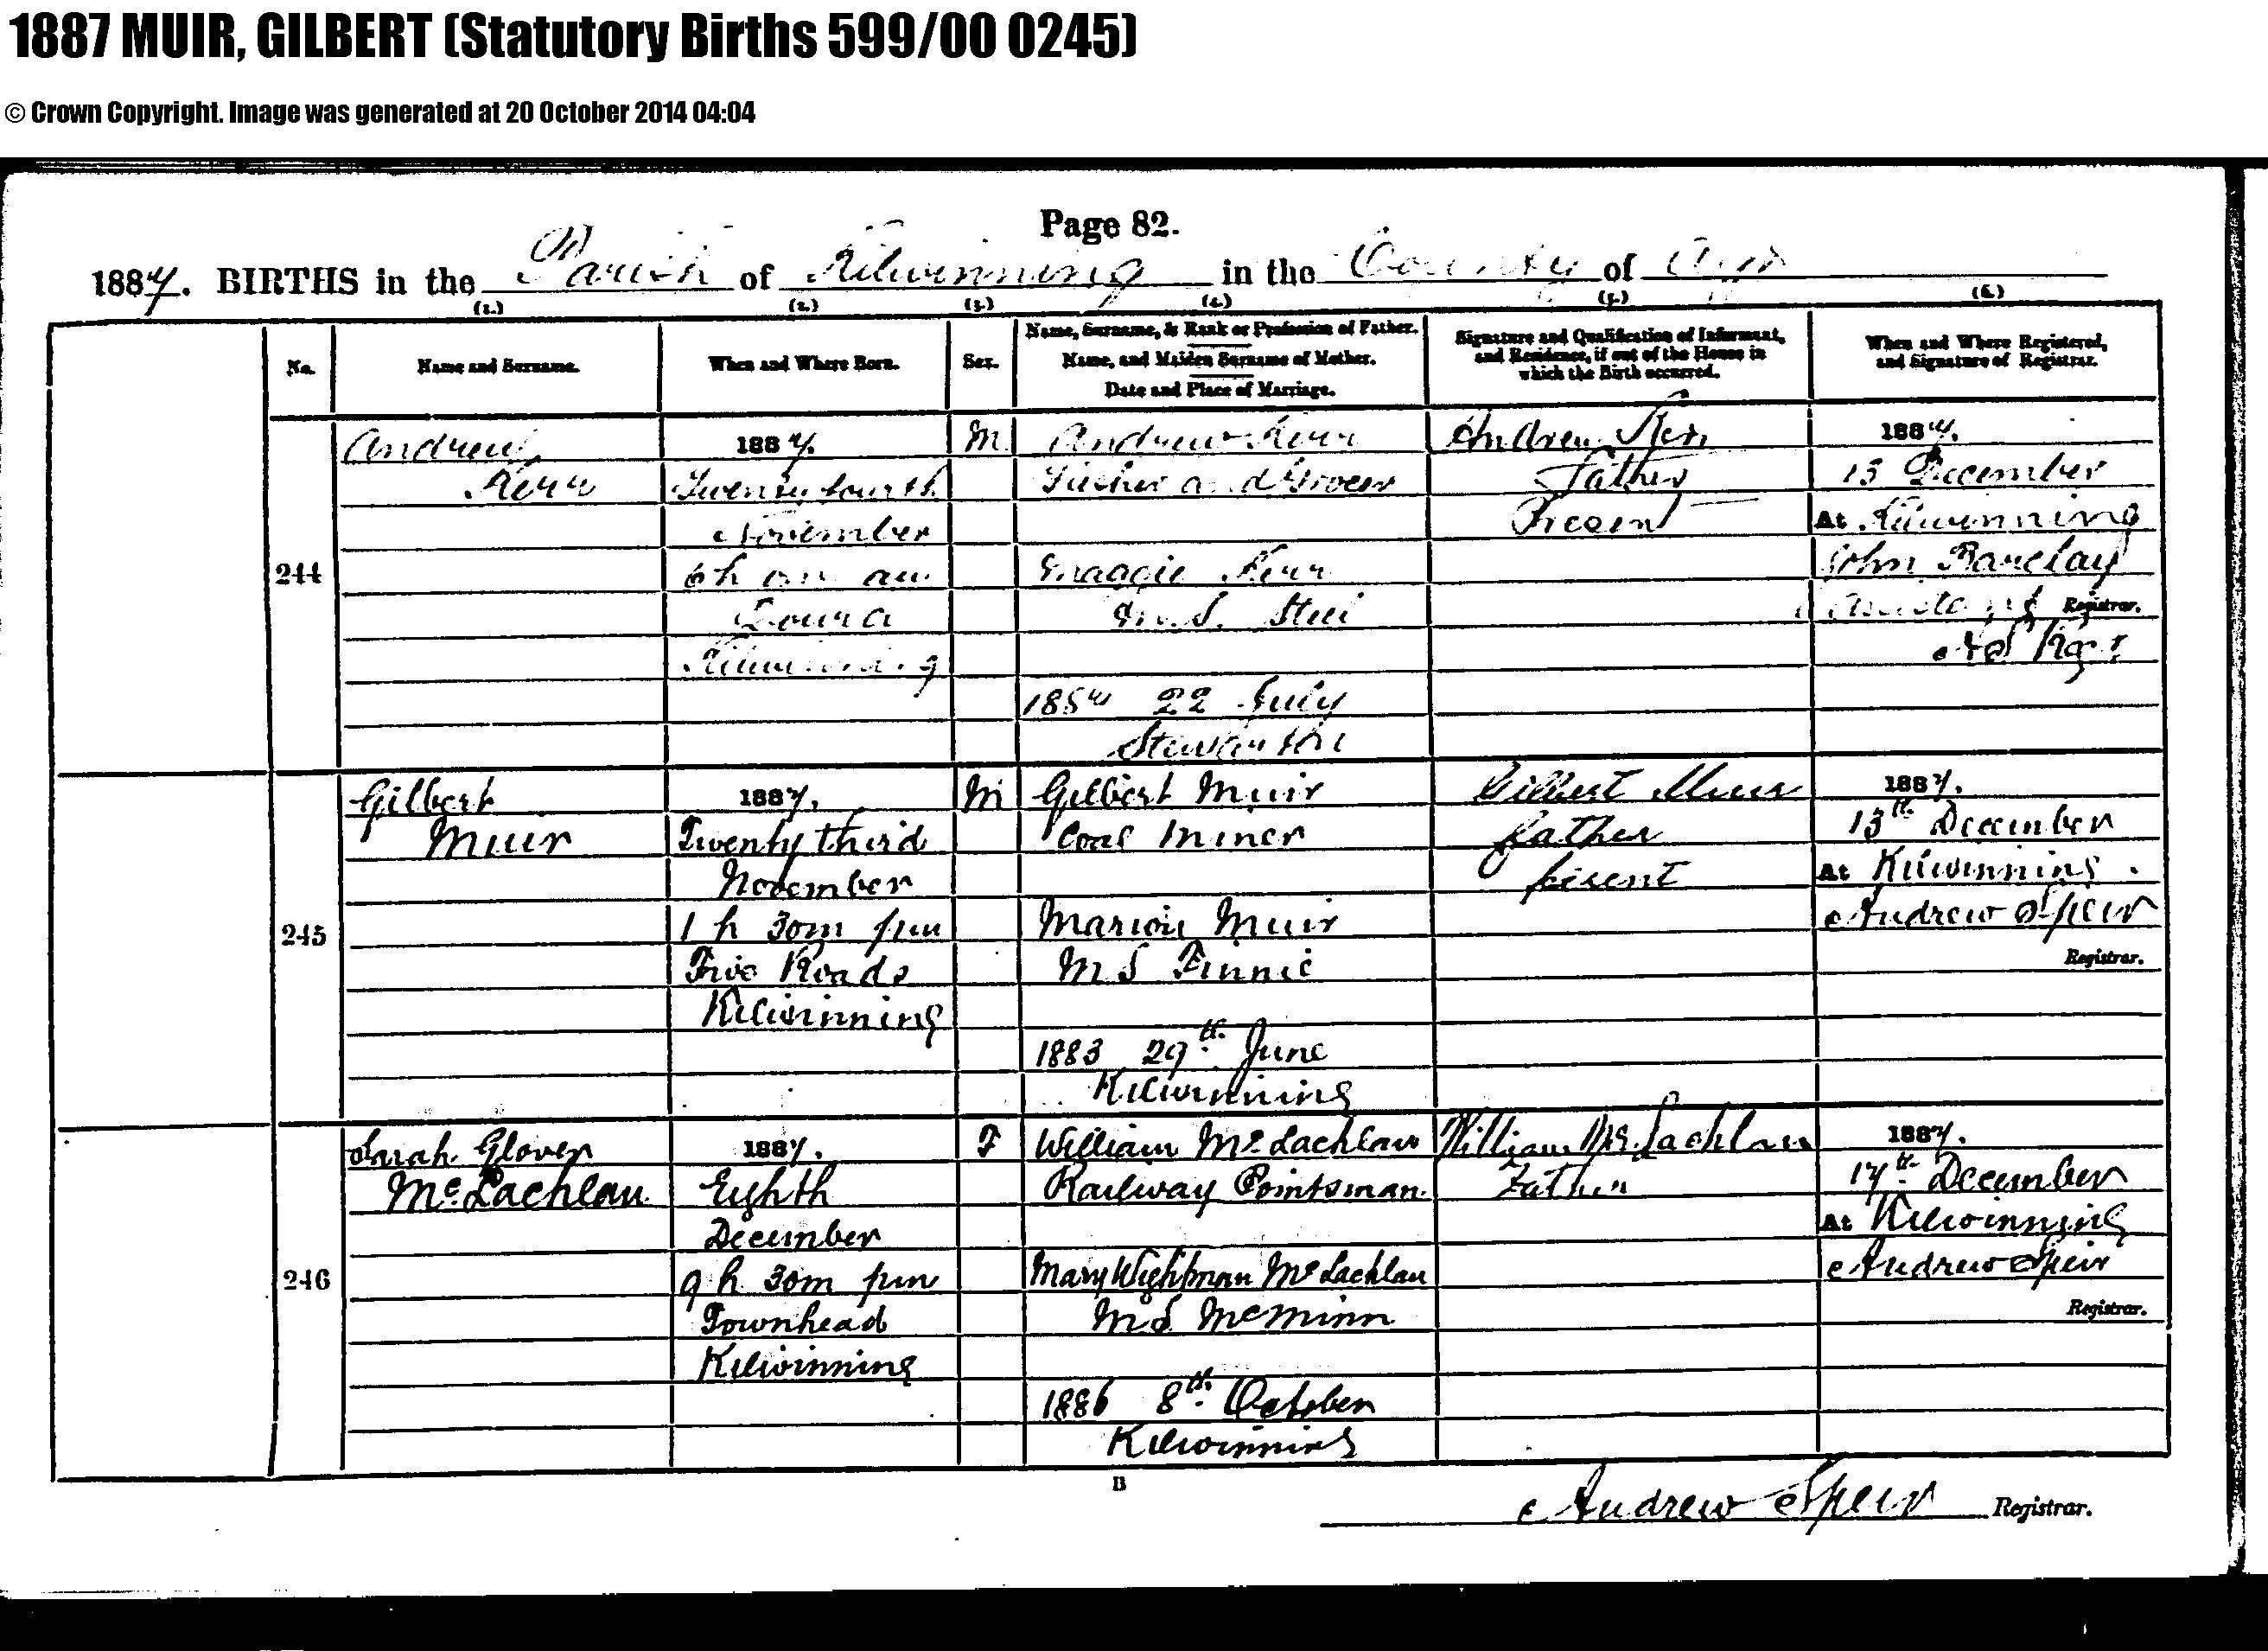 1887 MUIR, GILBERT (Statutory Births 599/00 0245)
© Crown Copyright. Image was generated at 20 October 2014 04:04
Page 82.
1887. BIRTHS in the Parish of Kilwinning in the County of Ayr
(1.) (2.) (3.) (4.) (5.) (6.)
No.
Name and Surname.
When and Where Born.
Sex.
Name, Surname, & Rank or Profession of Father.
Name, and Maiden Surname of Mother.
Date and Place of Marriage.
Signature and Qualification of Informant,
and Residence, if out of the House in
which the Birth occurred.
When and Where Registered,
and Signature of Registrar.
244
Andrew
Kerr
1887.
Twenty fourth
November
6 h am
Doura
Kilwinning
M
Andrew Kerr
and Grocer
Maggie Kerr
M.S. Steel
22 July
Stewarton
Andrew Kerr
Father
Present
1887.
13 December
At Kilwinning
John Barclay
Assistant Registrar.
245
Gilbert
Muir
1887.
Twenty third
November
1 h 30m pm
Five Roads
Kilwinning
M
Gilbert Muir
Coal Miner
Marion Muir
M S Finnie
1883 29th June
Kilwinning
Gilbert Muir
father
present
1887.
13th December
At Kilwinning.
Andrew Speir
Registrar.
246
Sarah Glover
McLachlan
1887.
Eighth
December
9 h 30m pm
Townhead
Kilwinning
F
William McLachlan
Railway Pointsman
Mary Wightman McLachlan
M.S. McMinn
1886 8th October
Kilwinning
William McLachlan
Father
1887.
17th December
At Kilwinning
Andrew Speir
Registrar.
B
Andrew Speir Registrar.